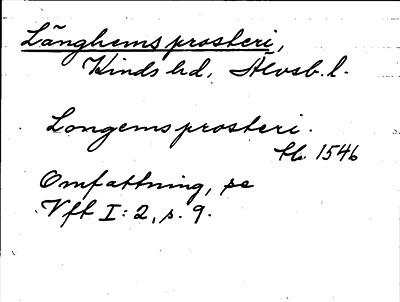 Länghems prosteri,
Kinds hd, Älvsb. l.
Longems prosteri.
tb 1546
Omfattning, se
Vft I: 2, s. 9.